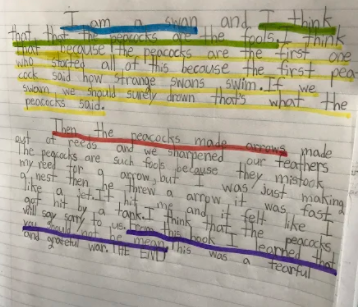 I am a swan and I think
that that the peacocks are the fools. I think
that because the peacocks are the first one
who started all of this because the first pea
cock said how strange swans swim. If we
swam we should surely drown that's what the
peacocks said.
Then the peacocks made arrows made
out of reeds and we sharpened our feathers
the peacocks are such fools because they mistock
my reef for a arrow, but I was just making
a nest then he threw a arrow it was fast
like a jet. It hit me and it felt like I
got hit by a tank. I think that the peacocks
will say sorry to us. From this book I learned that
you should not be mean this was a fearful
and grateful war. THE END